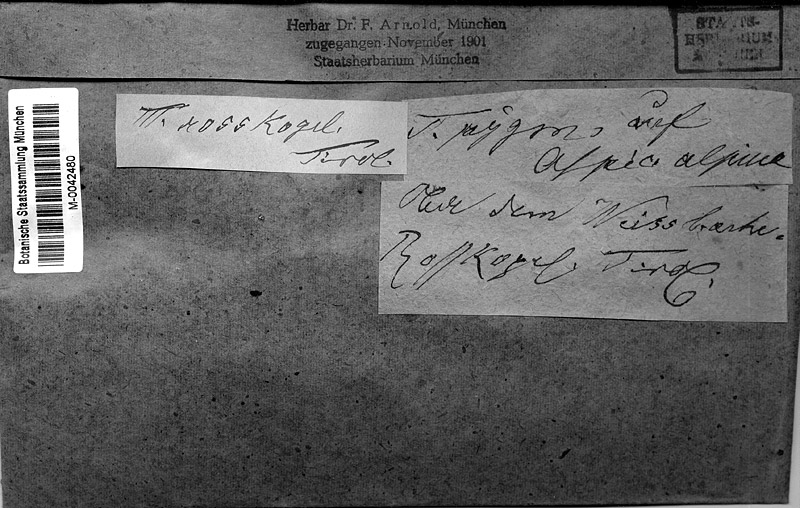 Herbar Dr. F. Arnold, München
zugegangen November 1901
Staatsherbarium München
STAATS-
HERBARIUM
MÜNCHEN
Botanische Staatssammlung München
M-0042480
Rosskogel.
Tirol.
T. pygm. auf
Aspic. alpina
Ober dem Weissbache.
Rosskogel. Tirol.